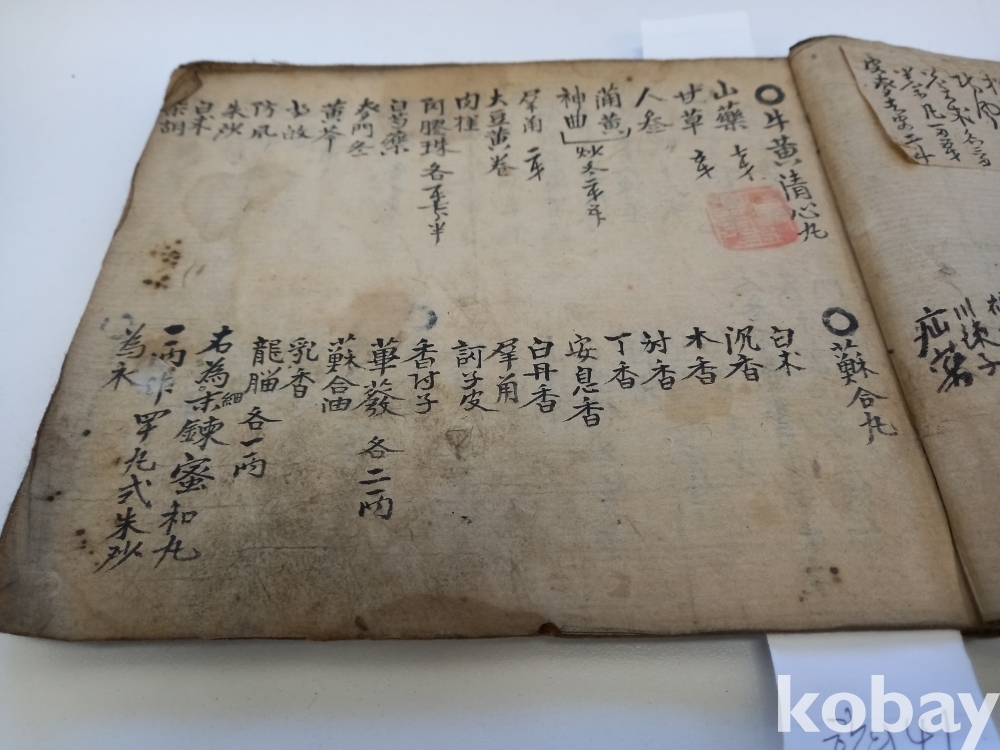 牛黄清心丸
山藥 七戔
甘草 五戔
人參
蒲黄
神曲 炒各二戔半
犀角 二戔
大豆黄卷
肉桂
阿膠珠 各一戔七分半
白芍藥
麥門冬
黄芩
當歸
防風
朱砂
白朮
柴胡
蘇合丸
白朮
沉香
木香
射香
丁香
安息香
白丹香
犀角
訶子皮
香付子
蓽撥 各二兩
蘇合油
乳香
龍腦 各一兩
右為細末鍊蜜和丸
一兩作四十丸式朱砂
為衣
川練子
kobay